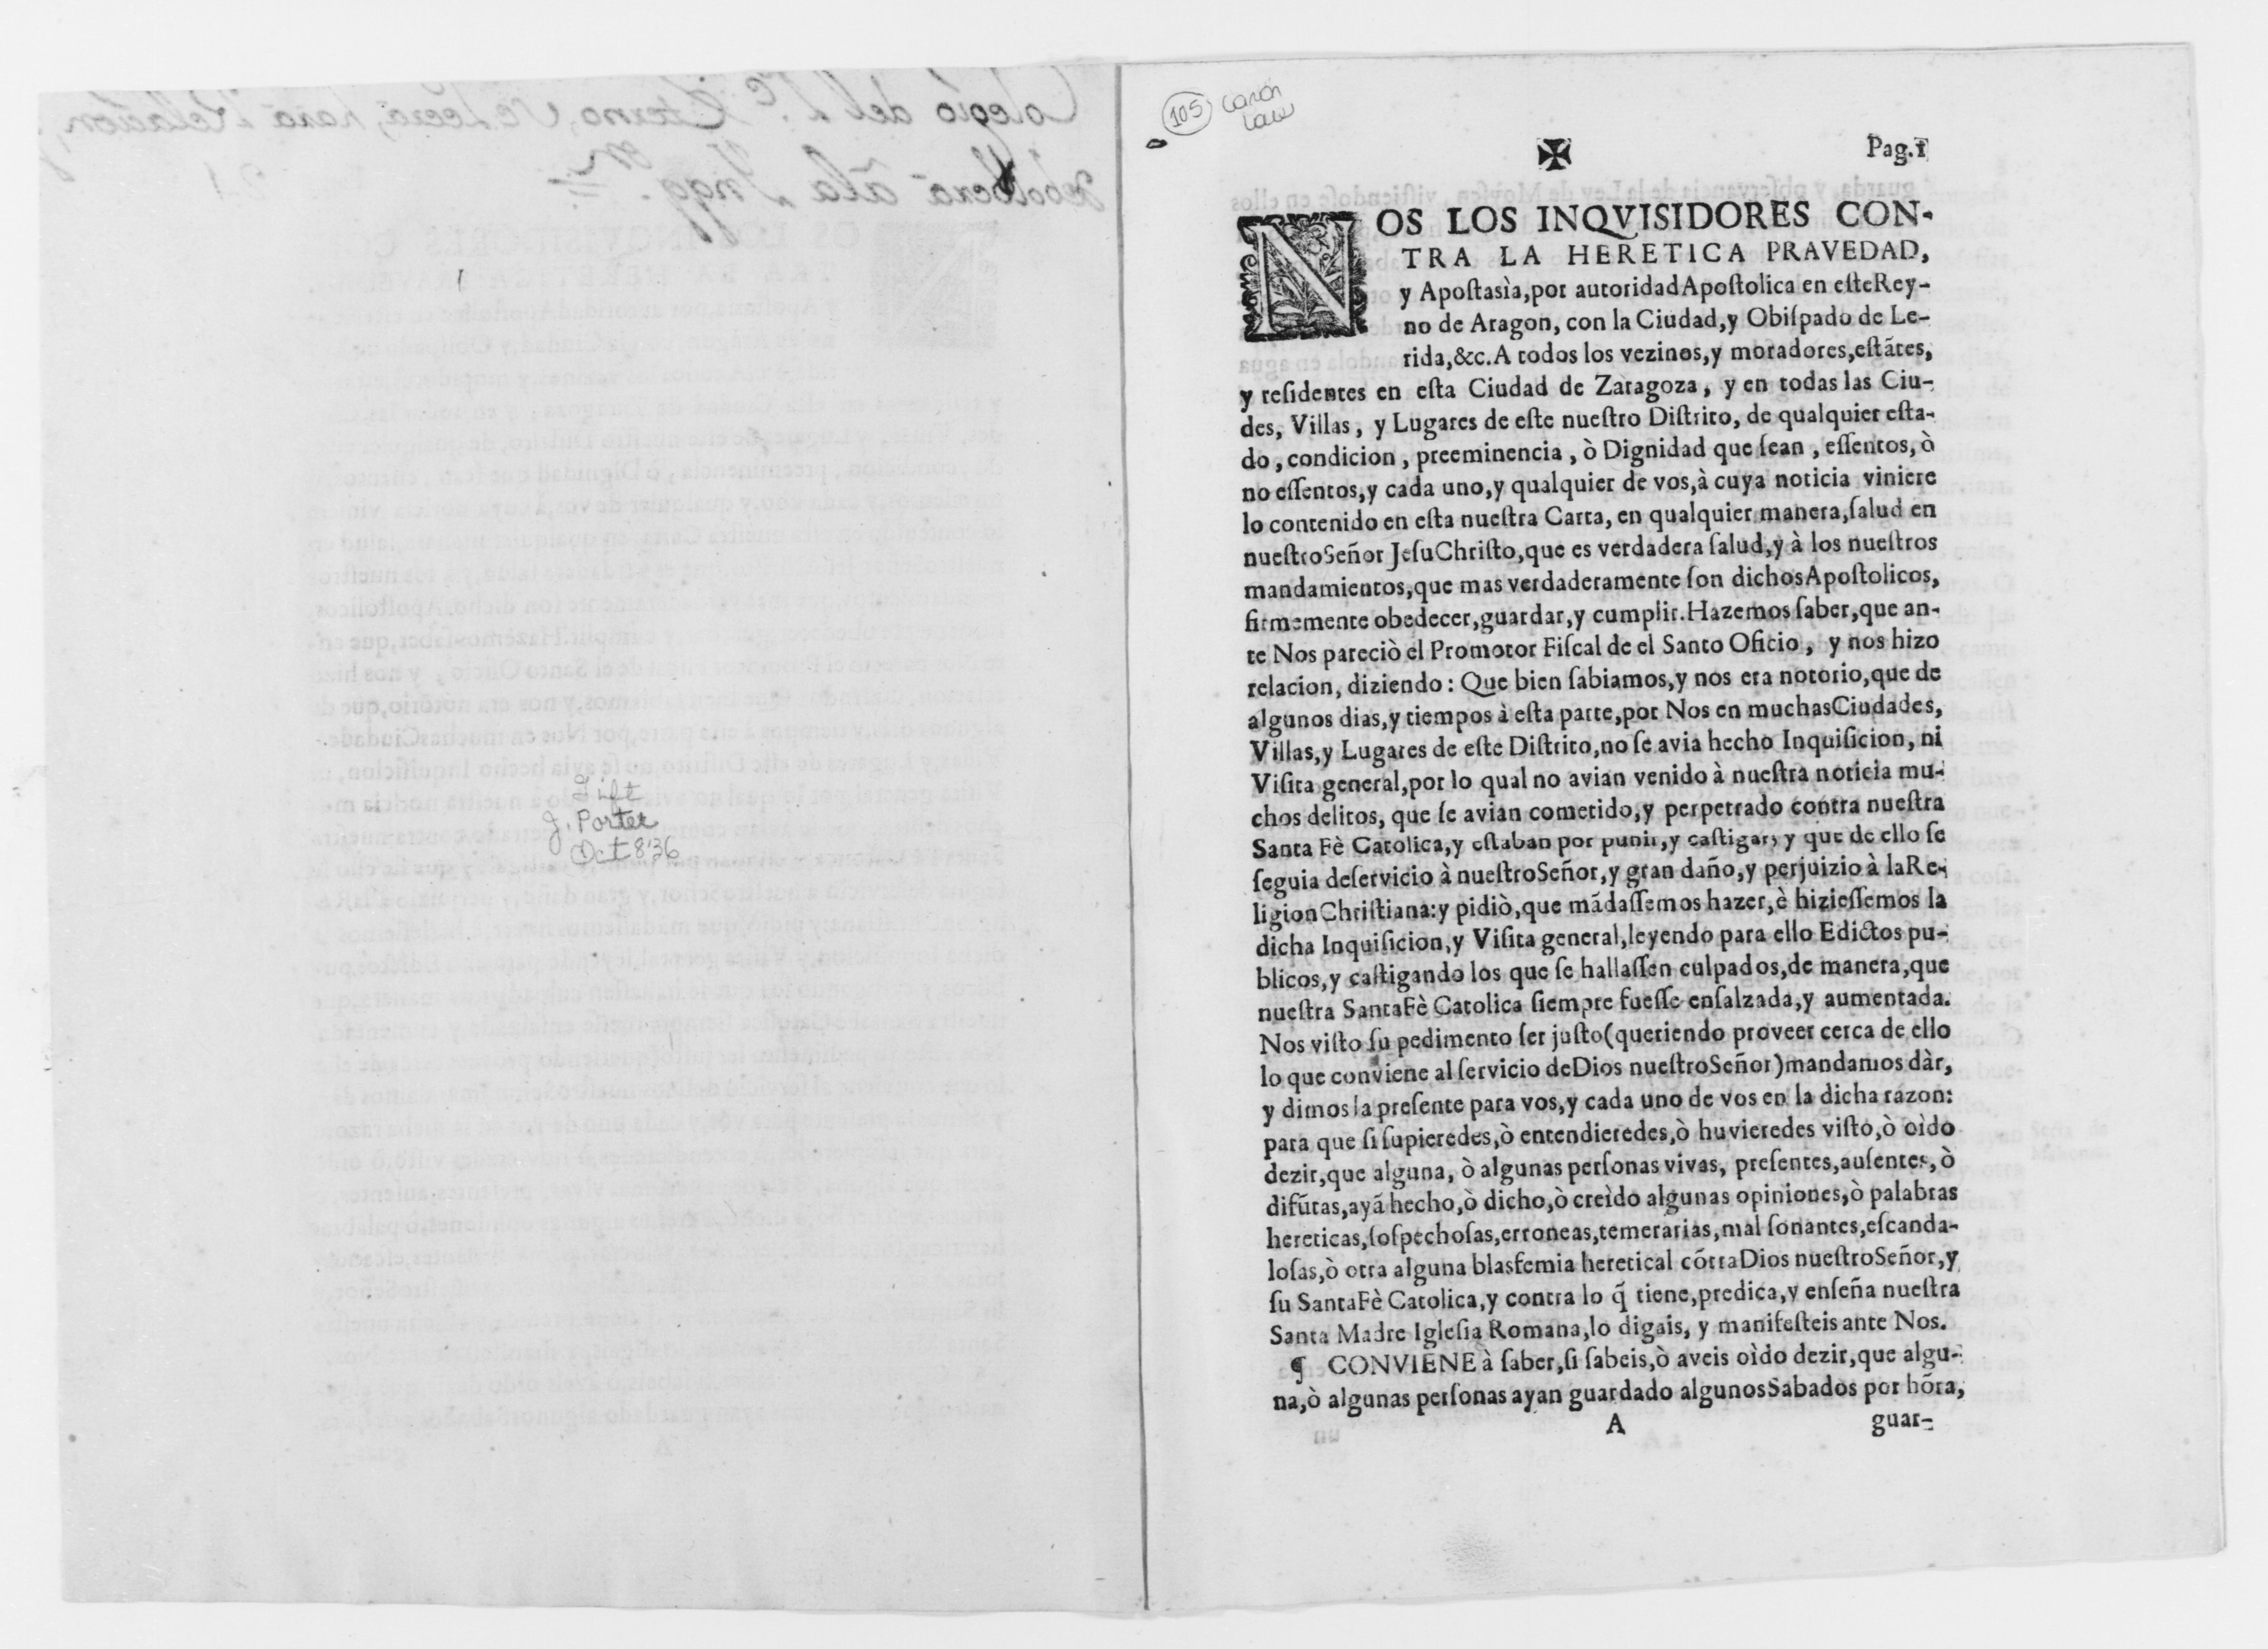 Gift
J. Porter
Oct 8'36
105 Canon
Law
Pag.1
NOS LOS INQVISIDORES CON-
TRA LA HERETICA PRAVEDAD,
y Apoſtasìa,por autoridadApoſtolica en eſteRey-
no de Aragon, con la Ciudad,y Obiſpado de Le-
rida,&c.A todos los vezinos,y moradores,eſtãtes,
y reſidentes en eſta Ciudad de Zaragoza, y en todas las Ciu-
des, Villas, y Lugares de eſte nueſtro Diſtrito, de qualquier eſta-
do, condicion, preeminencia, ò Dignidad que ſean, eſſentos, ò
no eſſentos,y cada uno,y qualquier de vos,à cuya noticia viniere
lo contenido en eſta nueſtra Carta, en qualquier manera,ſalud en
nueſtroSeñor JeſuChriſto,que es verdadera ſalud,y à los nueſtros
mandamientos,que mas verdaderamente ſon dichosApoſtolicos,
firmemente obedecer,guardar,y cumplir.Hazemos ſaber,que an-
te Nos pareciò el Promotor Fiſcal de el Santo Oficio, y nos hizo
relacion, diziendo: Que bien ſabiamos,y nos era notorio,que de
algunos dias,y tiempos à eſta parte,por Nos en muchasCiudades,
Villas,y Lugares de eſte Diſtrito,no ſe avia hecho Inquiſicion, ni
Viſita general,por lo qual no avian venido à nueſtra noticia mu-
chos delitos, que ſe avian cometido,y perpetrado contra nueſtra
Santa Fè Catolica,y eſtaban por punir,y caſtigar, y que de ello ſe
ſeguia deſervicio à nueſtroSeñor,y gran daño,y perjuizio à laRe-
ligionChriſtiana:y pidiò,que mãdaſſemos hazer,è hizieſſemos la
dicha Inquiſicion,y Viſita general,leyendo para ello Edictos pu-
blicos,y caſtigando los que ſe hallaſſen culpados,de manera,que
nueſtra SantaFè Catolica ſiempre fueſſe enſalzada,y aumentada.
Nos viſto ſu pedimento ſer juſto(queriendo proveer cerca de ello
lo que conviene al ſervicio deDios nueſtroSeñor)mandamos dàr,
y dimos la preſente para vos,y cada uno de vos en la dicha rázon:
para que ſi ſupieredes,ò entendieredes,ò huvieredes viſto,ò oìdo
dezir,que alguna, ò algunas perſonas vivas, preſentes,auſentes, ò
difũtas,ayã hecho,ò dicho,ò creìdo algunas opiniones,ò palabras
hereticas,ſoſpechoſas,erroneas,temerarias,mal ſonantes,eſcanda-
loſas,ò otra alguna blasfemia heretical cõtraDios nueſtroSeñor,y
ſu SantaFè Catolica,y contra lo q̃ tiene,predica,y enſeña nueſtra
Santa Madre Igleſia Romana,lo digais, y manifeſteis ante Nos.
¶ CONVIENE à ſaber,ſi ſabeis,ò aveis oìdo dezir,que algu-
na,ò algunas perſonas ayan guardado algunosSabados por hõra,
A guar-